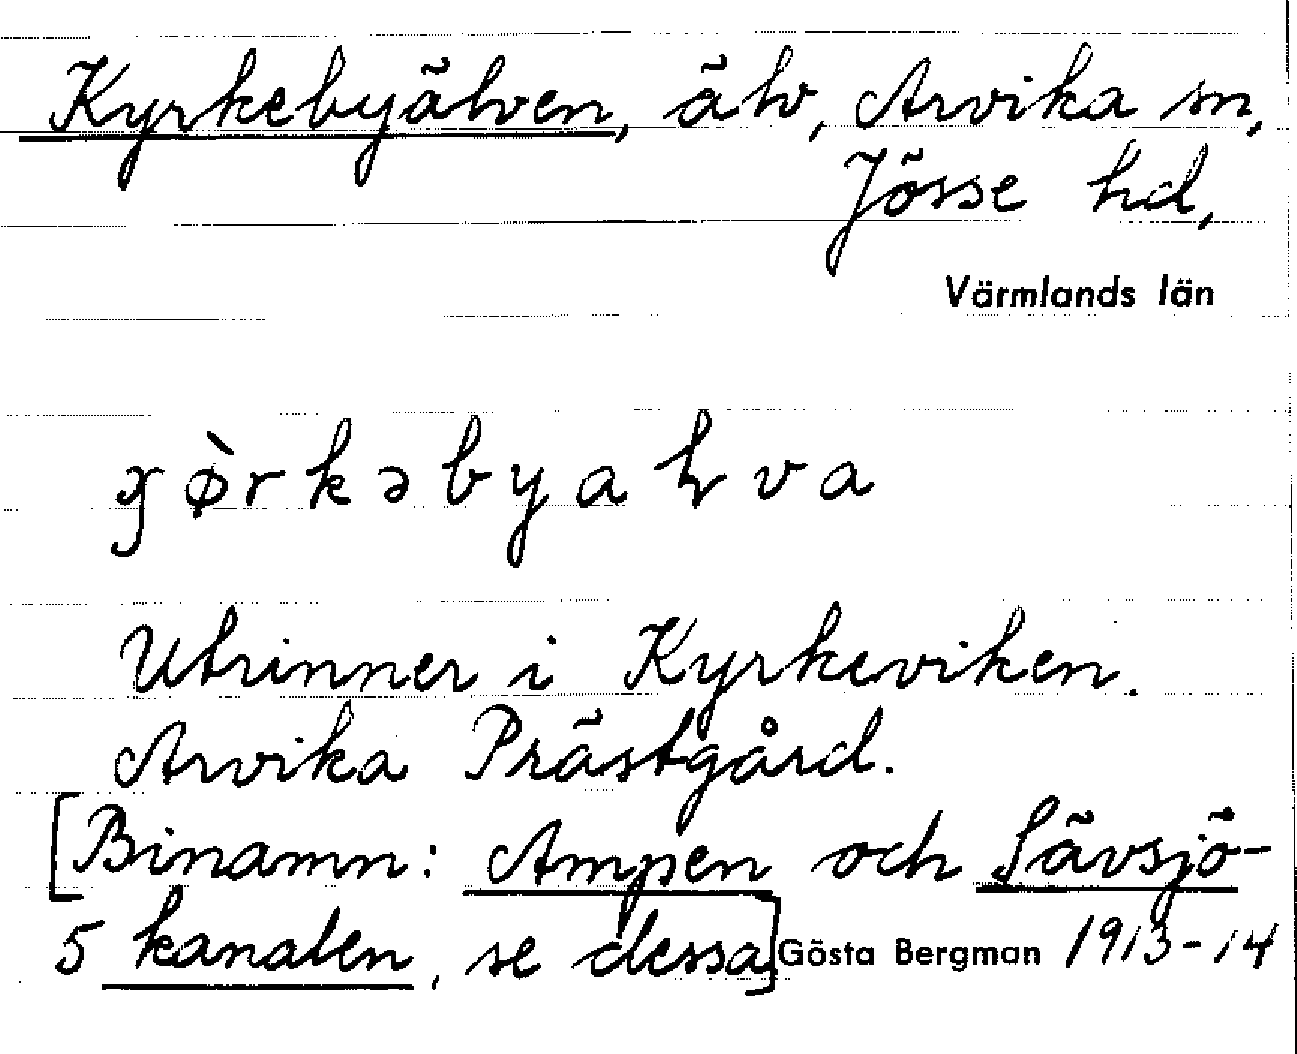 Kyrkebyälven, älv, Arvika sn,
Jösse hd,
Värmlands län
Utrinner i Kyrkeviken.
Arvika Prästgård.
[Binamn: Ampen och Sävsjö-
5 kanalen, se dessa] Gösta Bergman 1913-14